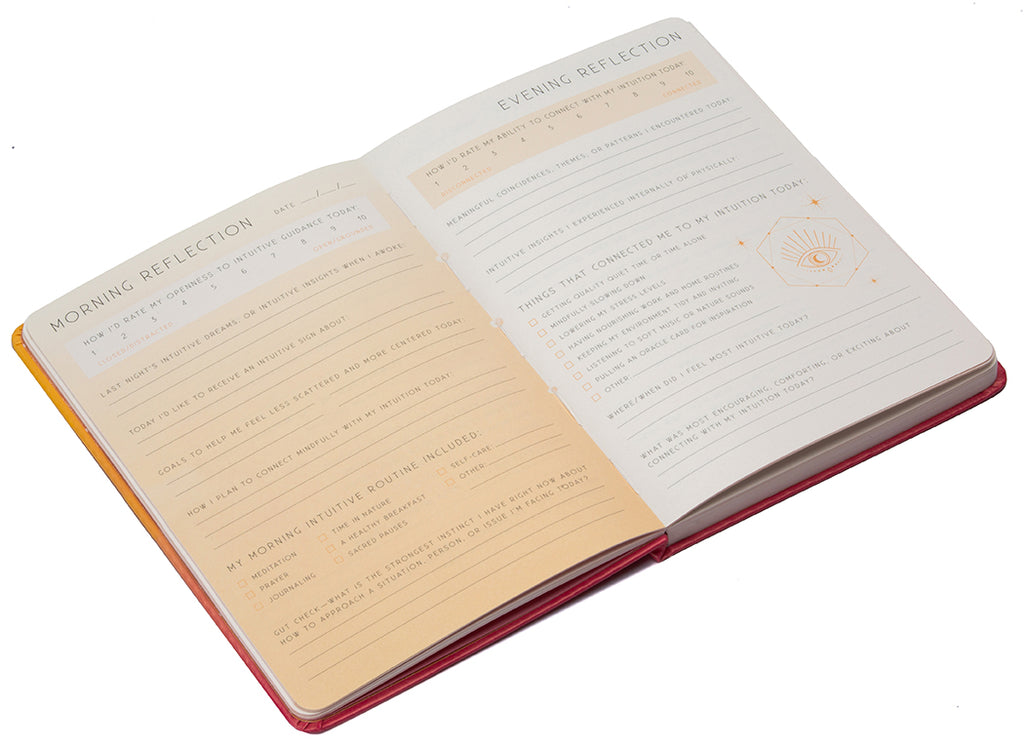 MORNING REFLECTION
DATE __/__/__
HOW I'D RATE MY OPENNESS TO INTUITIVE GUIDANCE TODAY
1 2 3 4 5 6 7 8 9 10
CLOSED/DISTRACTED OPEN/GROUNDED
LAST NIGHT'S INTUITIVE DREAMS, OR INTUITIVE INSIGHTS WHEN I AWOKE:
TODAY I'D LIKE TO RECEIVE AN INTUITIVE SIGN ABOUT:
GOALS TO HELP ME FEEL LESS SCATTERED AND MORE CENTERED TODAY:
HOW I PLAN TO CONNECT MINDFULLY WITH MY INTUITION TODAY:
MY MORNING INTUITIVE ROUTINE INCLUDED:
MEDITATION
PRAYER
JOURNALING
TIME IN NATURE
A HEALTHY BREAKFAST
SACRED PAUSES
SELF-CARE
OTHER
GUT CHECK—WHAT IS THE STRONGEST INSTINCT I HAVE RIGHT NOW ABOUT
HOW TO APPROACH A SITUATION, PERSON, OR ISSUE I'M FACING TODAY?
EVENING REFLECTION
HOW I'D RATE MY ABILITY TO CONNECT WITH MY INTUITION TODAY
1 2 3 4 5 6 7 8 9 10
DISCONNECTED CONNECTED
MEANINGFUL COINCIDENCES, THEMES, OR PATTERNS I ENCOUNTERED TODAY:
INTUITIVE INSIGHTS I EXPERIENCED INTERNALLY OR PHYSICALLY:
THINGS THAT CONNECTED ME TO MY INTUITION TODAY:
GETTING QUALITY QUIET TIME OR TIME ALONE
MINDFULLY SLOWING DOWN
LOWERING MY STRESS LEVELS
HAVING NOURISHING WORK AND HOME ROUTINES
KEEPING MY ENVIRONMENT TIDY AND INVITING
LISTENING TO SOFT MUSIC OR NATURE SOUNDS
PULLING AN ORACLE CARD FOR INSPIRATION
OTHER
WHERE/WHEN DID I FEEL MOST INTUITIVE TODAY?
WHAT WAS MOST ENCOURAGING, COMFORTING, OR EXCITING ABOUT
CONNECTING WITH MY INTUITION TODAY?